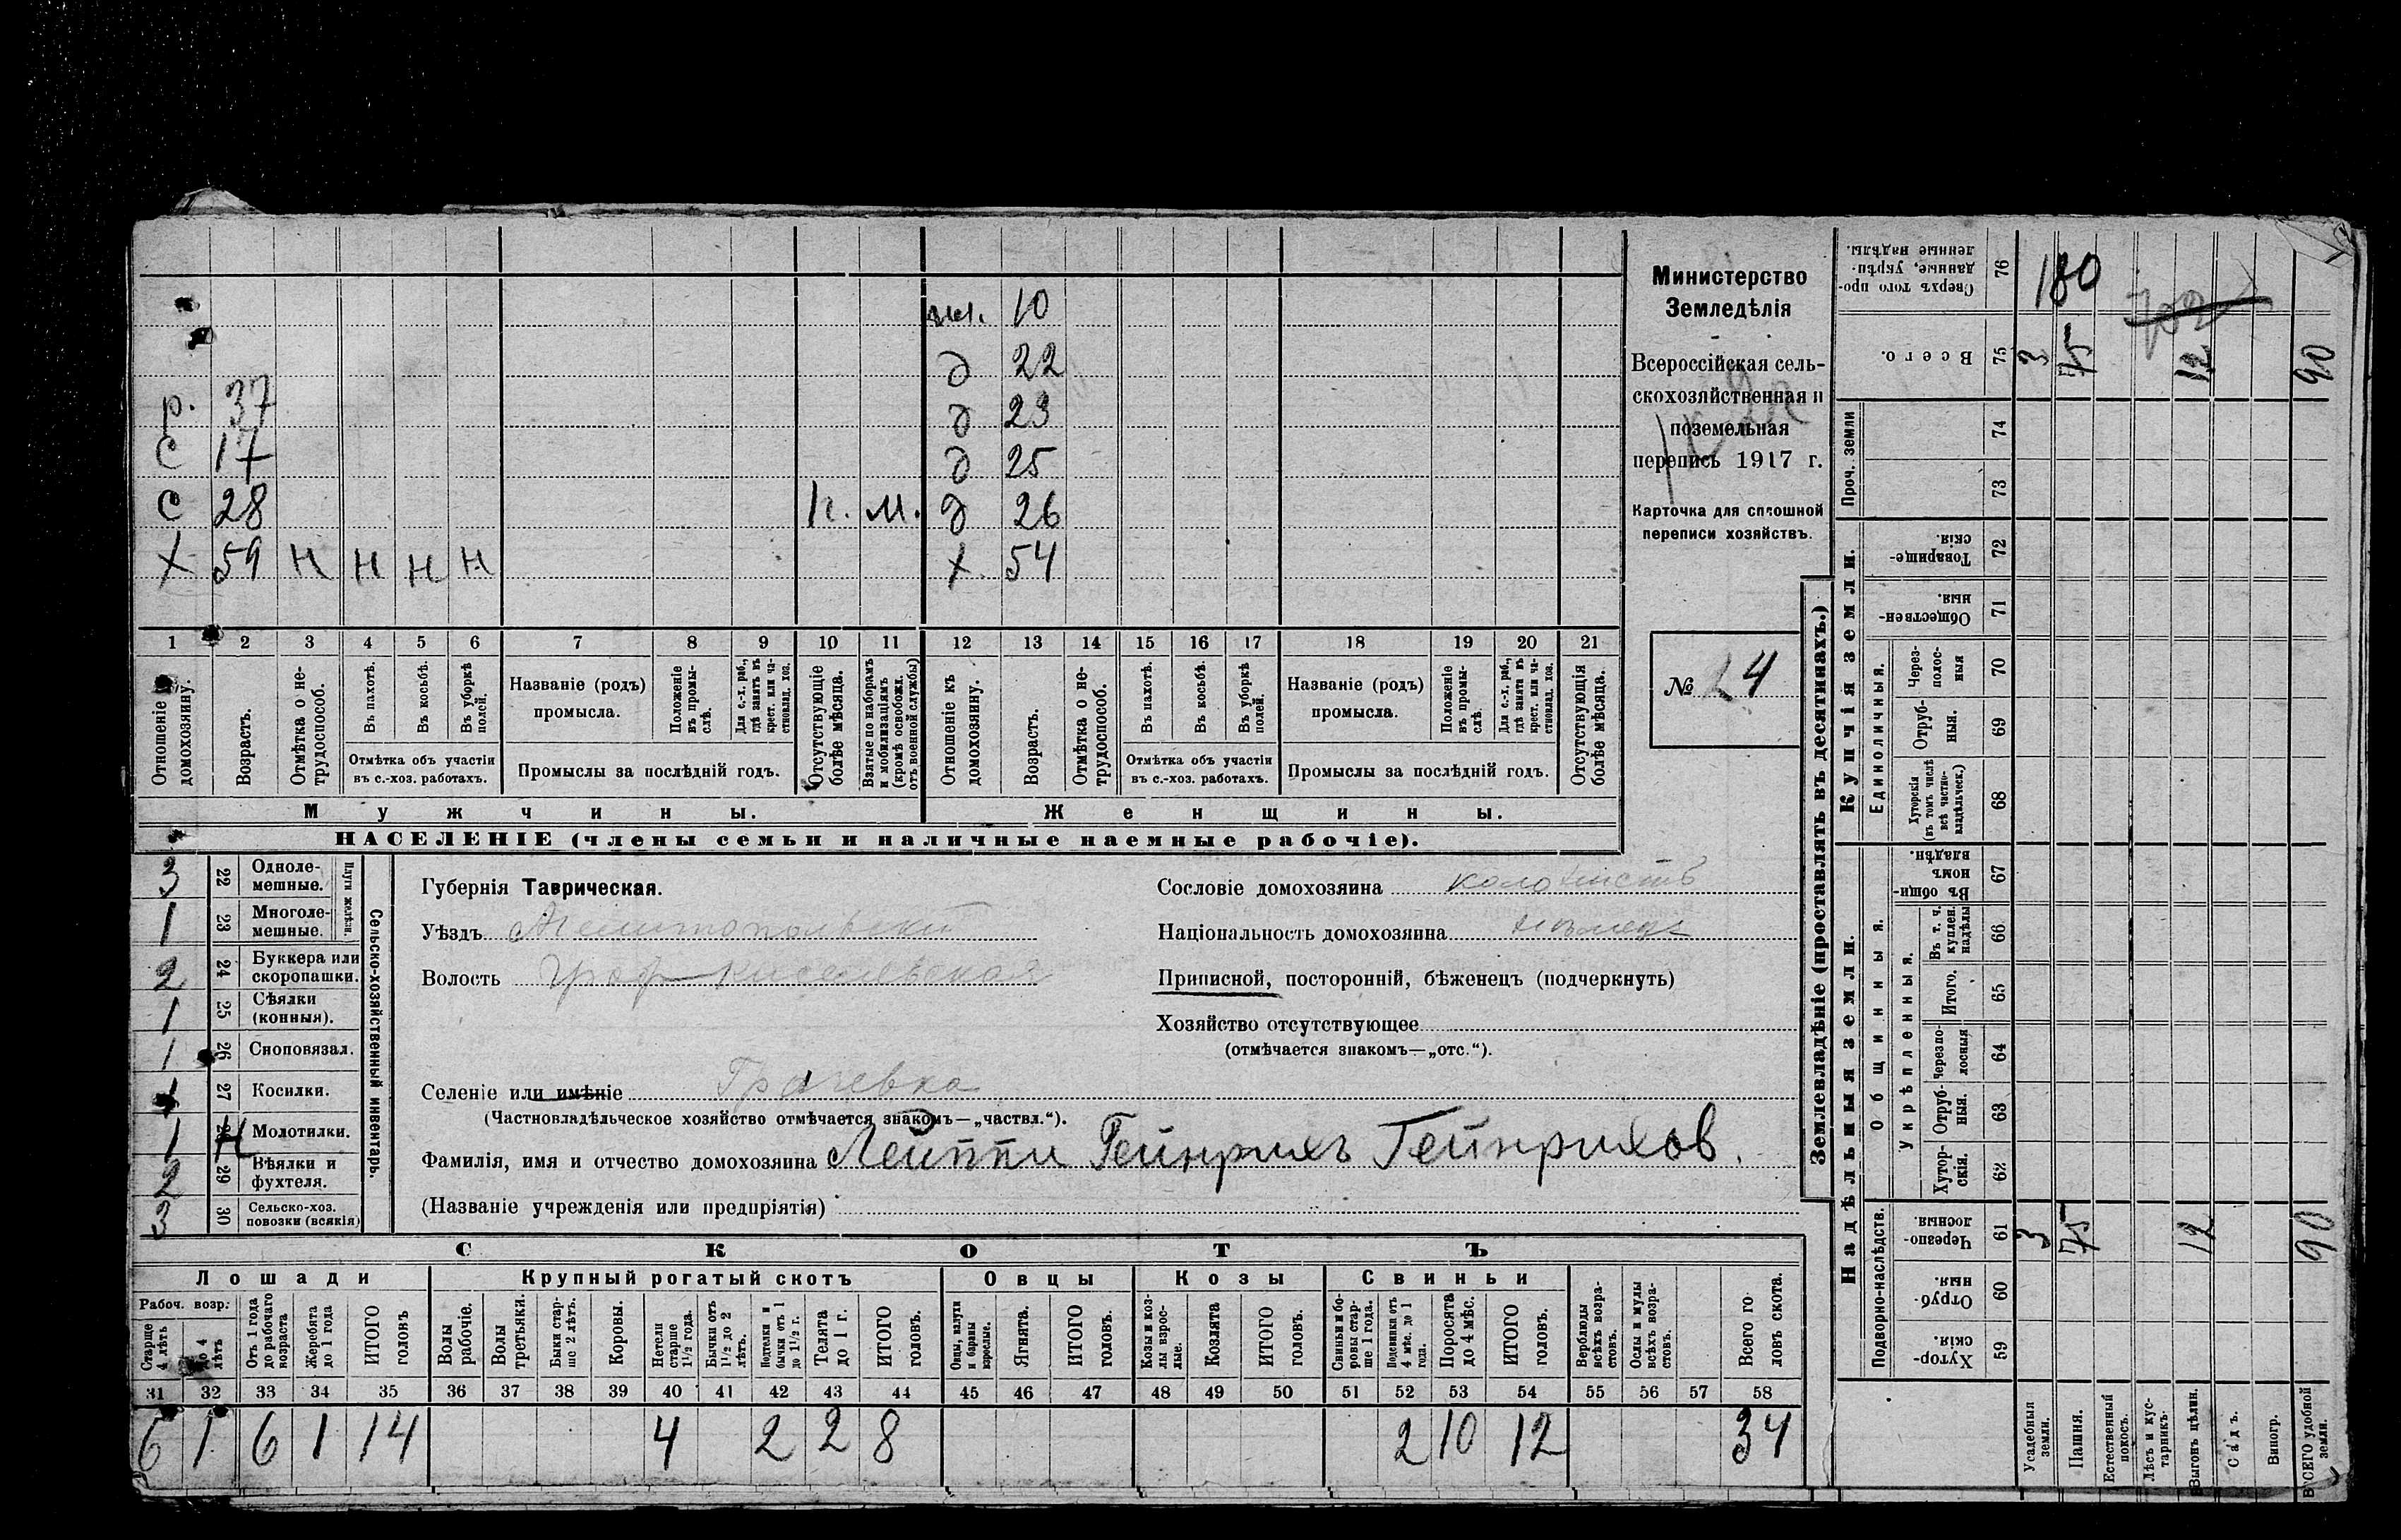 Министерство
Земледѣлія
Всероссійская сель-
скохозяйственная и
поземельная
перепись 1917 г.
Карточка для сплошной
переписи хозяйствъ.
№ 24
10
д 22
д 23
д 25
д 26
х 54
р. 37
с 17
с 28 м.
х 59 н н н н
1 2 3 4 5 6 7 8 9 10 11 12 13 14 15 16 17 18 19 20 21
Отношеніе къ домохозяину.
Возрастъ.
Отмѣтка о не-
трудоспособ.
Въ пахотѣ.
Въ косьбѣ.
Въ уборкѣ
полей.
Отмѣтка объ участіи
въ с.-хоз. работахъ.
Названіе (родъ)
промысла.
Положеніе
въ промы-
слѣ.
Для с.-х. раб.,
гдѣ занятъ въ
крест. или ча-
стновлад. хоз.
Промыслы за послѣдній годъ.
Отсутствующіе
болѣе мѣсяца.
Взятые по наборамъ
и мобилизаціямъ
(кромѣ освобожд.
отъ военной службы)
Отношеніе къ
домохозяину.
Возрастъ.
Отмѣтка о не-
трудоспособ.
Въ пахотѣ.
Въ косьбѣ.
Въ уборкѣ
полей.
Отмѣтка объ участіи
въ с.-хоз. работахъ.
Названіе (родъ)
промысла.
Положеніе
въ промы-
слѣ.
Для с.-х. раб.,
гдѣ занята въ
крест. или ча-
стновлад. хоз.
Промыслы за послѣдній годъ.
Отсутствующія
болѣе мѣсяца.
Мужчины.
Женщины.
НАСЕЛЕНІЕ (члены семьи и наличные наемные рабочіе).
Сельско-хозяйственный инвентарь.
Плуги желѣзн.
3 22 Одноле-
мешные.
1 23 Многоле-
мешные.
2 24 Буккера или
скоропашки.
1 25 Сѣялки
(конныя).
1 26 Сноповязал.
1 27 Косилки.
1 н Молотилки.
2 29 Вѣялки и
фухтеля.
3 30 Сельско-хоз.
повозки (всякія)
Губернія Таврическая.
Уѣздъ Мелитопольскій
Волость Граф-Киселевская
Селеніе или имѣніе Грачевка
(Частновладѣльческое хозяйство отмѣчается знакомъ—„частвл.“).
Фамилія, имя и отчество домохозяина Лейппи Гейнрихъ Гейнрихов.
(Названіе учрежденія или предпріятія)
Сословіе домохозяина колонистъ
Національность домохозяина нѣмецъ
Приписной, посторонній, бѣженецъ (подчеркнуть)
Хозяйство отсутствующее
(отмѣчается знакомъ—„отс.“).
СКОТЪ
Лошади
Крупный рогатый скотъ
Овцы
Козы
Свиньи
Рабоч. возр:
Старше
4 лѣтъ
до 4
лѣтъ
Отъ 1 года
до рабочаго
возраста
Жеребята
до 1 года
ИТОГО
головъ
Волы
рабочіе.
Волы
третьяки.
Быки стар-
ше 2 лѣтъ.
Коровы.
Нетели
старше
1½ года.
Бычки отъ
1½ до 2
лѣтъ.
Подтелки и
бычки отъ 1
до 1½ г.
Телята
до 1 г.
ИТОГО
головъ.
Овцы, валухи
и бараны
взрослые.
Ягнята.
ИТОГО
головъ.
Козы и коз-
лы взрос-
лые.
Козлята
ИТОГО
головъ.
Свиньи и бо-
ровы стар-
ше 1 года.
Подсвинки отъ
4 мѣс. до 1
года.
Поросята
до 4 мѣс.
ИТОГО
головъ.
Верблюды
всѣхъ возра-
стовъ.
Ослы и мулы
всѣхъ возра-
стовъ.
Всего го
ловъ скота.
31 32 33 34 35 36 37 38 39 40 41 42 43 44 45 46 47 48 49 50 51 52 53 54 55 56 57 58
6 1 6 1 14 4 2 2 8 2 10 12 34
Землевладѣніе (проставлять въ десятинахъ.)
Купчія земли.
Надѣльныя земли.
Проч. земли
Единоличныя.
Общинныя.
Укрѣпленныя.
Подворно-наслѣдств.
Сверхъ того про-
данные, укрѣп-
ленные надѣлы. 76 180
Всего. 75 3 75 12 90
74
73
Товарище-
скія. 72
Обществен-
ныя. 71
Через-
полос-
ныя 70
Отруб-
ныя. 69
Хуторскія
(въ томъ числѣ
всѣ частно-
владѣльческ.) 68
Въ общин-
номъ
владѣн. 67
Въ т. ч.
куплен.
надѣлы 66
Итого. 65
Черезпо-
лосныя 64
Отруб-
ныя. 63
Хутор-
скія. 62
Черезпо-
лосныя. 61 3 75 12 90
Отруб-
ныя. 60
Хутор-
скія. 59
Усадебныя
земли.
Пашня.
Естественный
покосъ.
Лѣсъ и кус-
тарникъ.
Выгонъ цѣлин.
Садъ.
Виногр.
ВСЕГО удобной
земли.